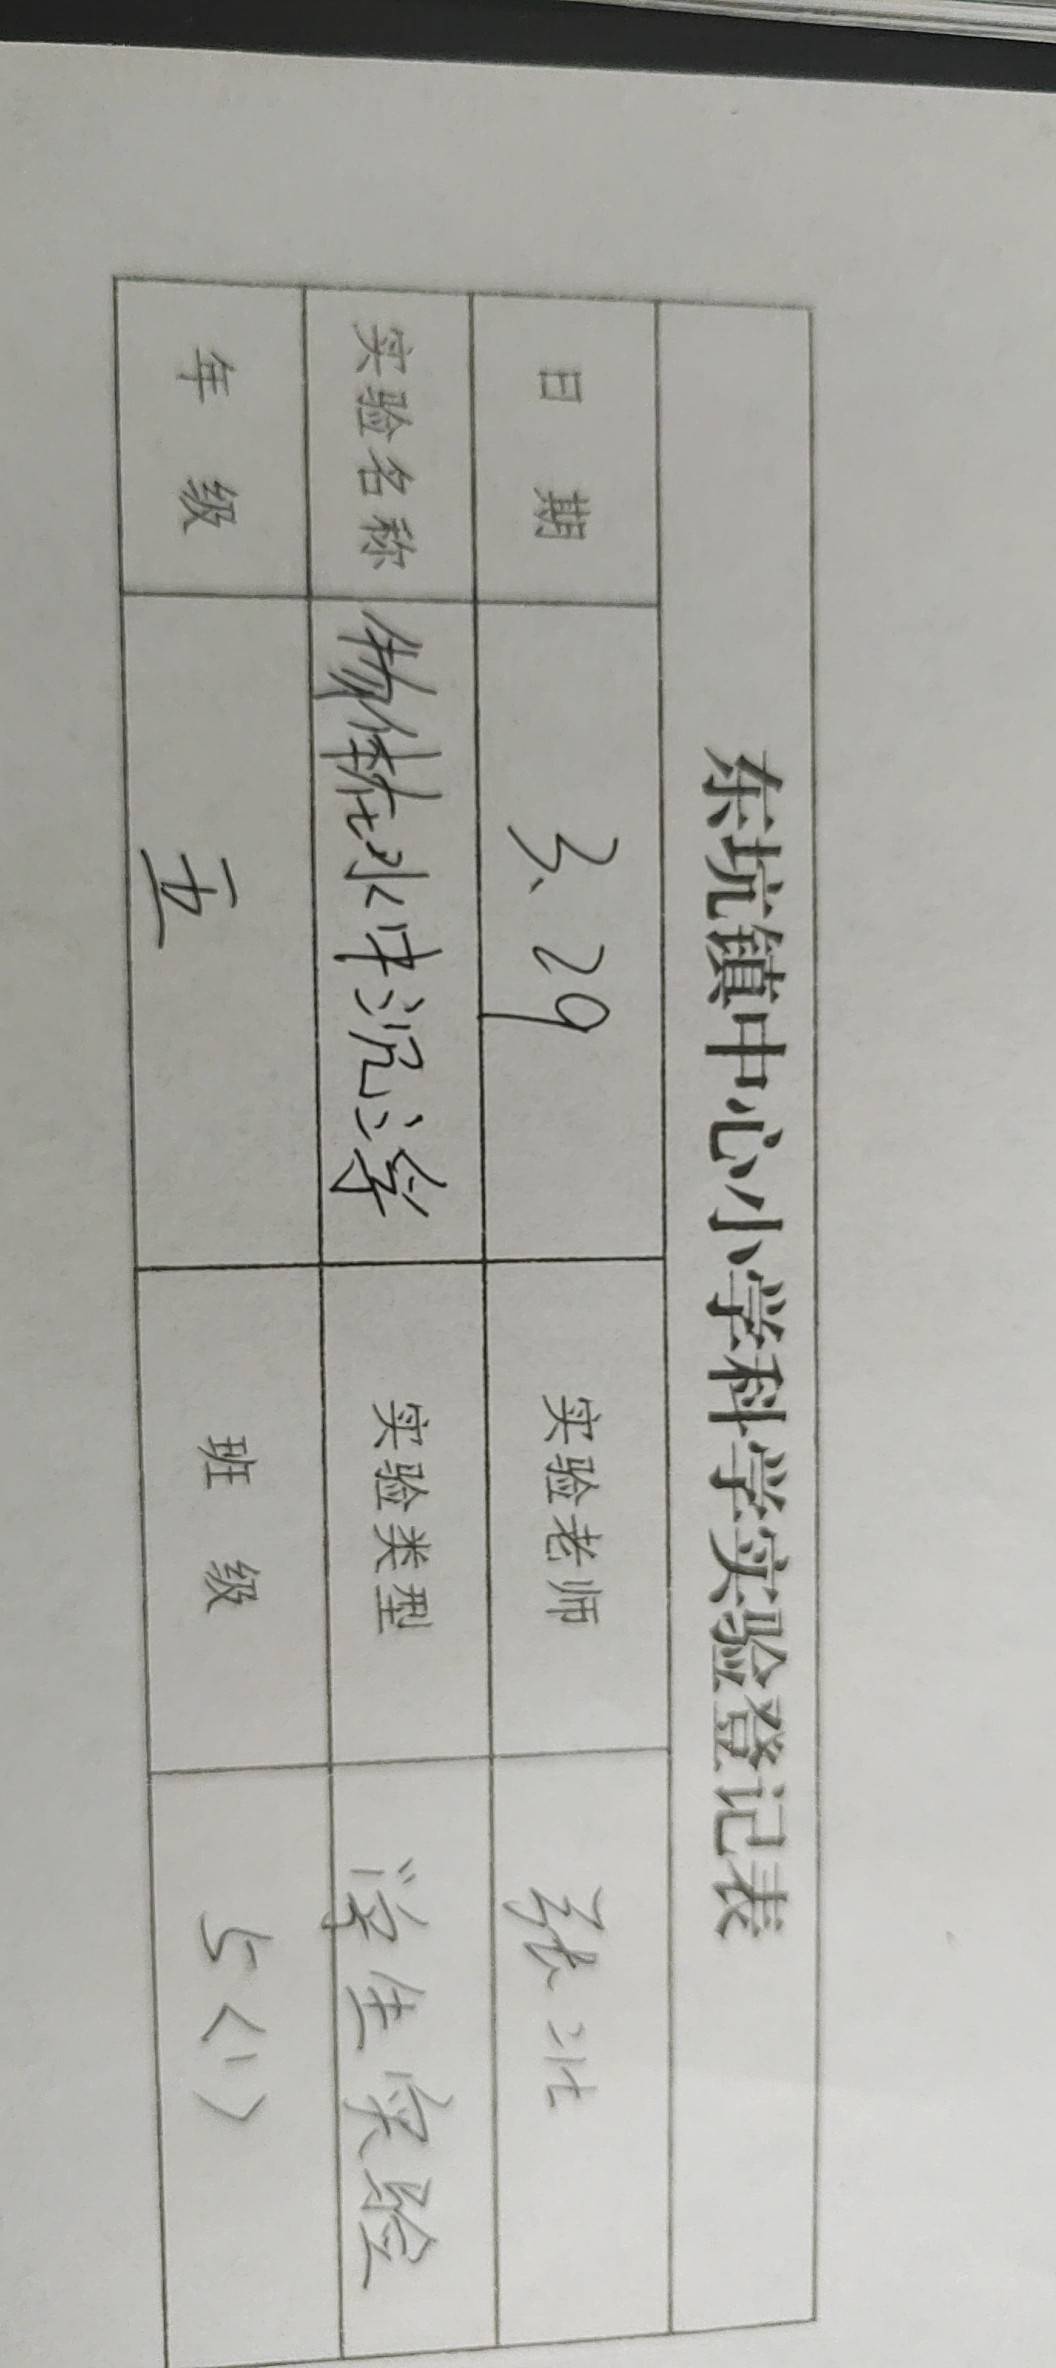 东坑镇中心小学科学实验登记表
日 期 3.29 实验老师 张北
实验名称 物体在水中沉浮 实验类型 学生实验
年 级 五 班 级 5(1)